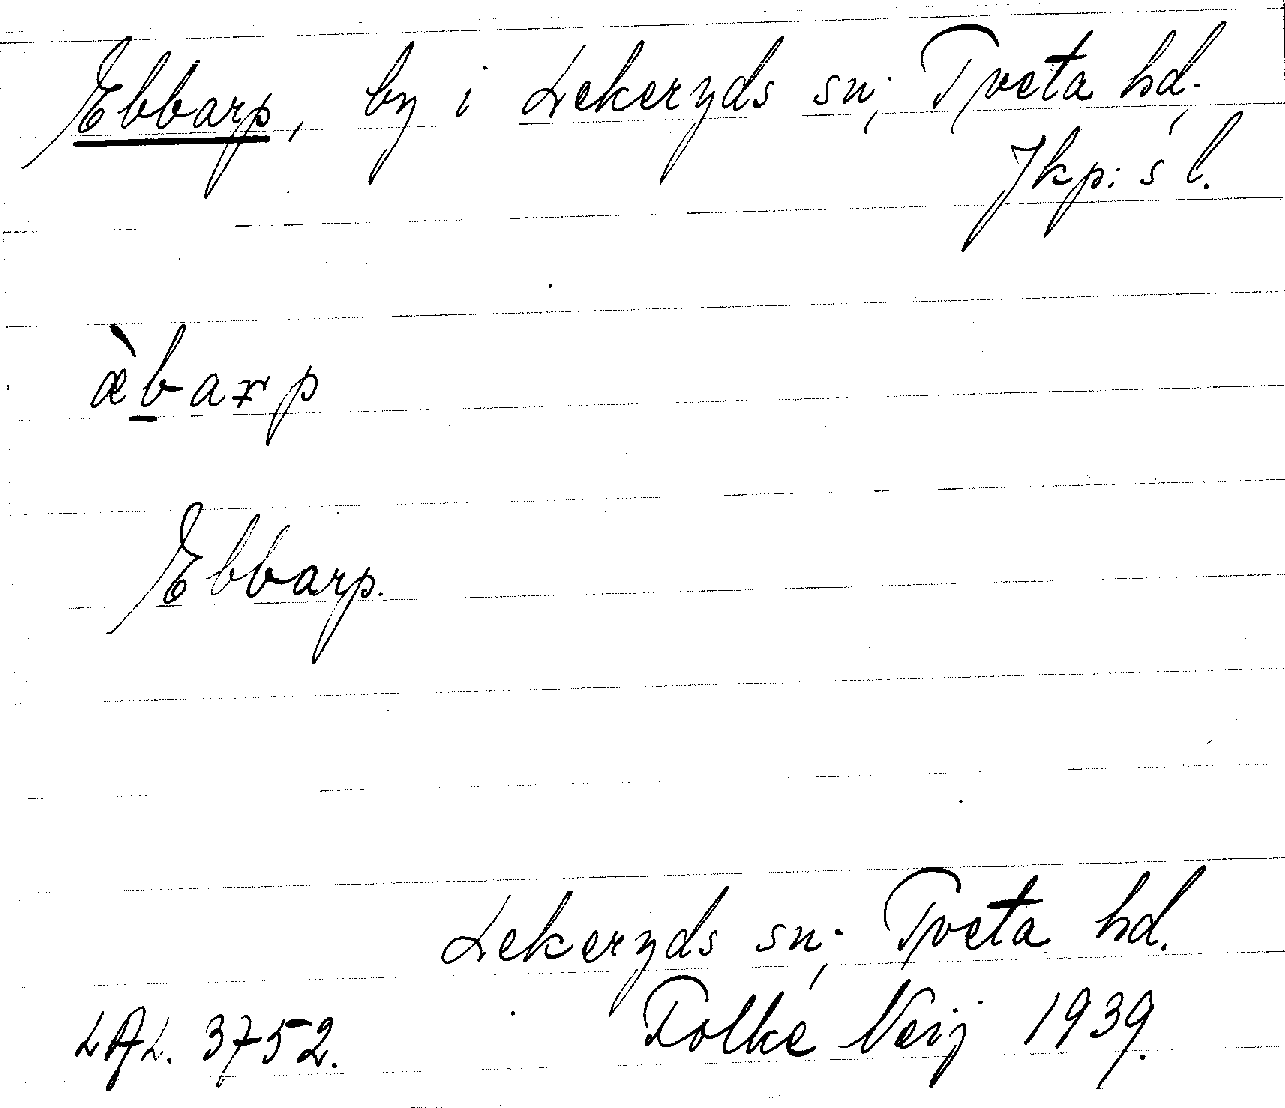 Ebbarp, by i Lekeryds sn., Tveta hd.,
Jkp:s l.
æ̀b̲arp
Ebbarp.
Lekeryds sn., Tveta hd.
LAL. 3752. Folke Neij 1939.